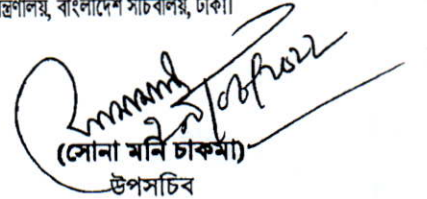 ন্ত্রণালয়, বাংলাদেশ সচিবালয়, ঢাকা।
(সোনা মনি চাকমা)
উপসচিব